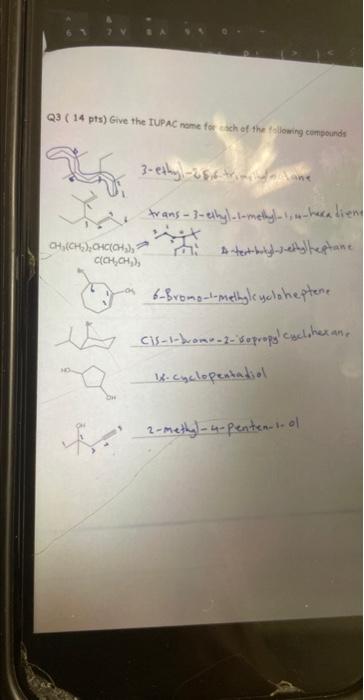 Q3 ( 14 pts) Give the IUPAC name for each of the following compounds
3-ethyl-2,5,6-trimethyloctane
trans-3-ethyl-1-methyl-1,4-hexadiene
CH3(CH2)2CHC(CH3)3
C(CH2CH3)3
4-tert-butyl-3-ethylheptane
Br
CH3
6-Bromo-1-methylcycloheptene
Br
cis-1-bromo-2-isopropylcyclohexane
HO
OH
cyclopentadiol
OH
2-methyl-4-penten-1-ol